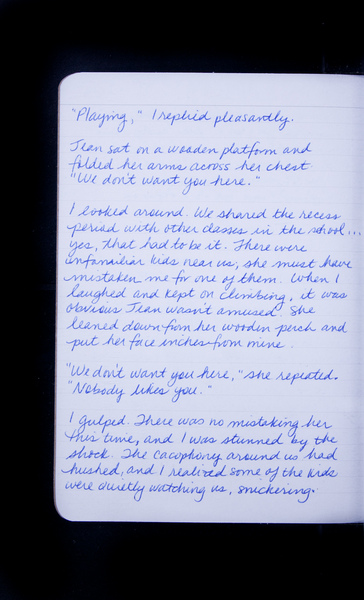 "Playing," I replied pleasantly.
Jean sat on a wooden platform and
folded her arms across her chest.
"We don't want you here."
I looked around. We shared the recess
period with other classes in the school...
yes, that had to be it. There were
unfamiliar kids near us, she must have
mistaken me for one of them. When I
laughed and kept on climbing, it was
obvious Jean wasn't amused. She
leaned down from her wooden perch and
put her face inches from mine.
"We don't want you here," she repeated.
"Nobody likes you."
I gulped. There was no mistaking her
this time, and I was stunned by the
shock. The cacophony around us had
hushed, and I realized some of the kids
were quietly watching us, snickering.